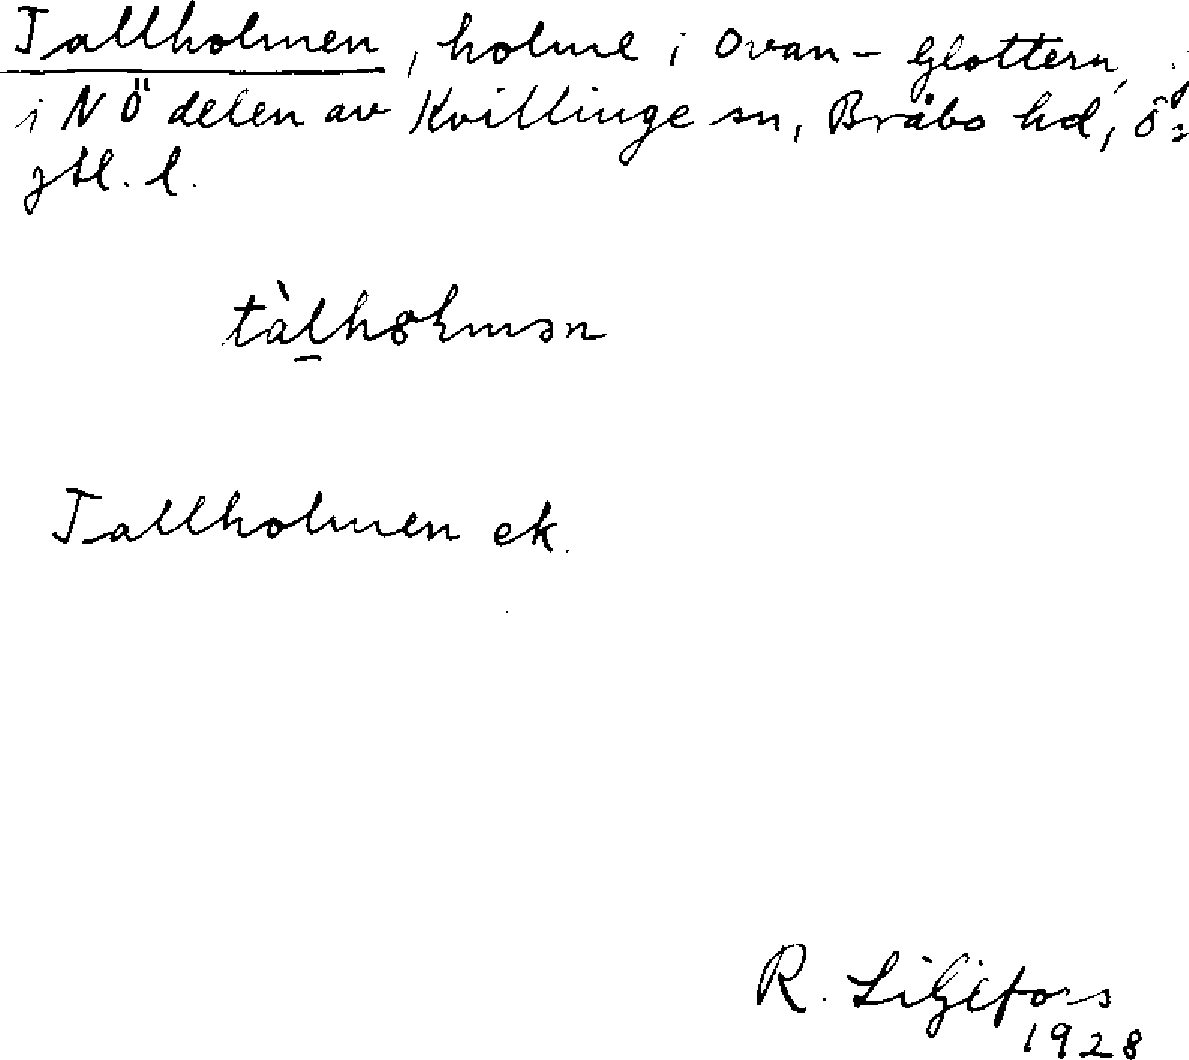 Tallholmen, holme i Ovan-Glottern,
i NÖ delen av Kvillinge sn, Bråbo hd, Ö=
gtl. l.
tàl̠hoɫmən
Tallholmen ek.
R. Liljefors
1928